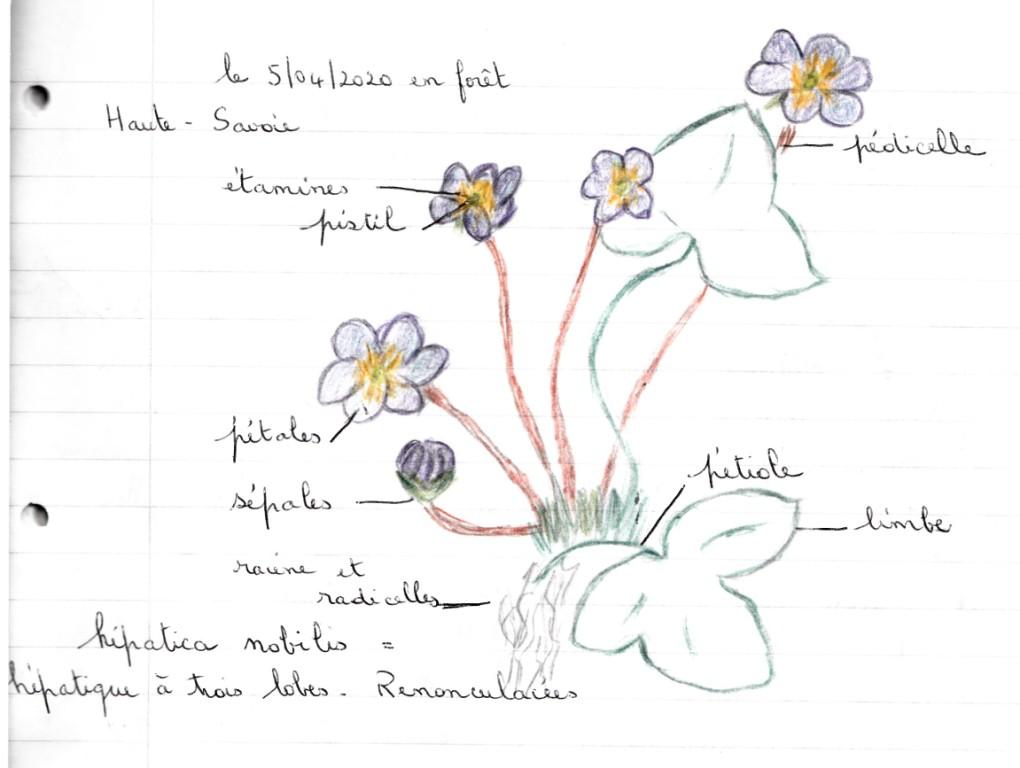 le 5/04/2020 en forêt
Haute-Savoie
pédicelle
étamines
pistil
pétales
sépales
pétiole
limbe
racine et
radicelles
hépatica nobilis =
hépatique à trois lobes. Renonculacées